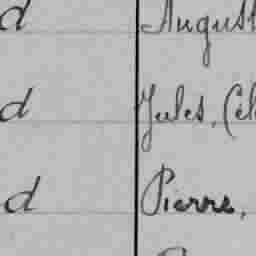 d August
d Jules, Cél
d Pierre,